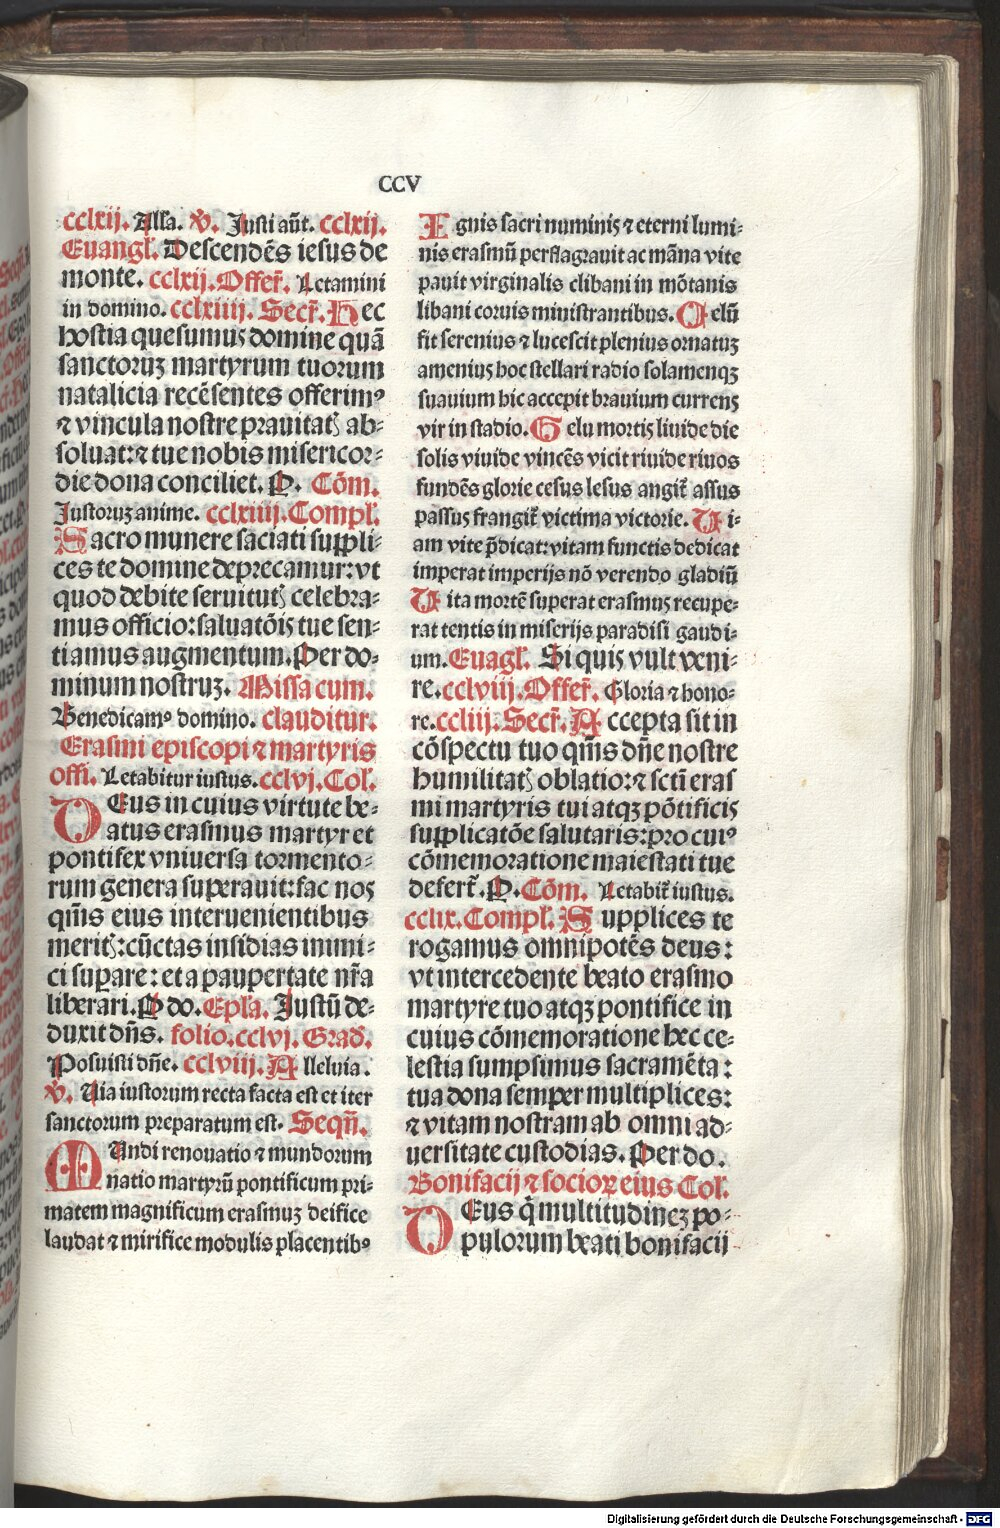 CCV
cclxij. Alla. ℣. Justi aūt. cclxij.
Euangl̄. Descendēs iesus de
monte. cclxij. Offer̄. Letamini
in domino. cclxiiij. Secr̄. Hec
hostia quesumus domine quā
sanctoruꝫ martyrum tuorum
natalicia recēsentes offerimꝰ
⁊ vincula nostre prauitatꝭ ab-
soluat: ⁊ tue nobis misericor-
die dona conciliet. P. Cōm.
Justoruꝫ anime. cclxiiij. Compl̄.
Sacro munere saciati suppli-
ces te domine deprecamur: vt
quod debite seruitutꝭ celebra-
mus officio: saluatōis tue sen-
tiamus augmentum. Per do-
minum nostruꝫ. Missa cum.
Benedicamꝰ domino. clauditur.
Erasmi episcopi ⁊ martyris
offi. Letabitur iustus. cclvj. Col̄.
DEus in cuius virtute be-
atus erasmus martyr et
pontifex vniuersa tormento-
rum genera superauit: fac nos
qm̄s eius interuenientibus
meritꝭ: cūctas insidias inimi-
ci supare: et a paupertate nr̄a
liberari. P do. Epl̄a. Justū de-
duxit dn̄s. folio. cclvj. Grad̄.
Posuisti dn̄e. cclviij. Alleluia.
℣. Uia iustorum recta facta est et iter
sanctorum preparatum est. Seqn̄.
MUndi renouatio ⁊ mundorum
natio martyrū pontificum pri-
matem magnificum erasmuꝫ deifice
laudat ⁊ mirifice modulis placentibꝰ
Egnis sacri numinis ⁊ eterni lumi-
nis erasmū perflagrauit ac māna vite
pauit virginalis clibani in mōtanis
libani coruis ministrantibus. Celū
fit serenius ⁊ lucescit plenius ornatuꝫ
amenius hoc stellari radio solamenqꝫ
suauium hic accepit brauium currens
vir in stadio. Gelu mortis liuide die
solis viuide vincēs vicit riuide riuos
fundēs glorie cesus lesus angit̄ assus
passus frangit̄ victima victorie. Ui-
am vite p̄dicat: vitam functis dedicat
imperat imperijs nō verendo gladiū
Uita mortē superat erasmus recupe-
rat tentis in miserijs paradisi gaudi-
um. Euagl̄. Si quis vult veni-
re. cclviij. Offer̄. Gloria ⁊ hono-
re. ccliij. Secr̄. Accepta sit in
cōspectu tuo qm̄s dn̄e nostre
humilitatꝭ oblatio: ⁊ sctī eras
mi martyris tui atqꝫ pōtificis
supplicatōe salutaris: pro cuiꝰ
cōmemoratione maiestati tue
defert̄. P. Cōm. Letabit̄ iustus.
cclix. Compl̄. Supplices te
rogamus omnipotēs deus:
vt intercedente beato erasmo
martyre tuo atqꝫ pontifice in
cuius cōmemoratione hec ce-
lestia sumpsimus sacramēta:
tua dona semper multiplices:
⁊ vitam nostram ab omni ad-
uersitate custodias. Per do.
Bonifacij ⁊ socioꝝ eius Col̄.
DEus q̄ multitudineꝫ po-
pulorum beati bonifacij
Digitalisierung gefördert durch die Deutsche Forschungsgemeinschaft - DFG